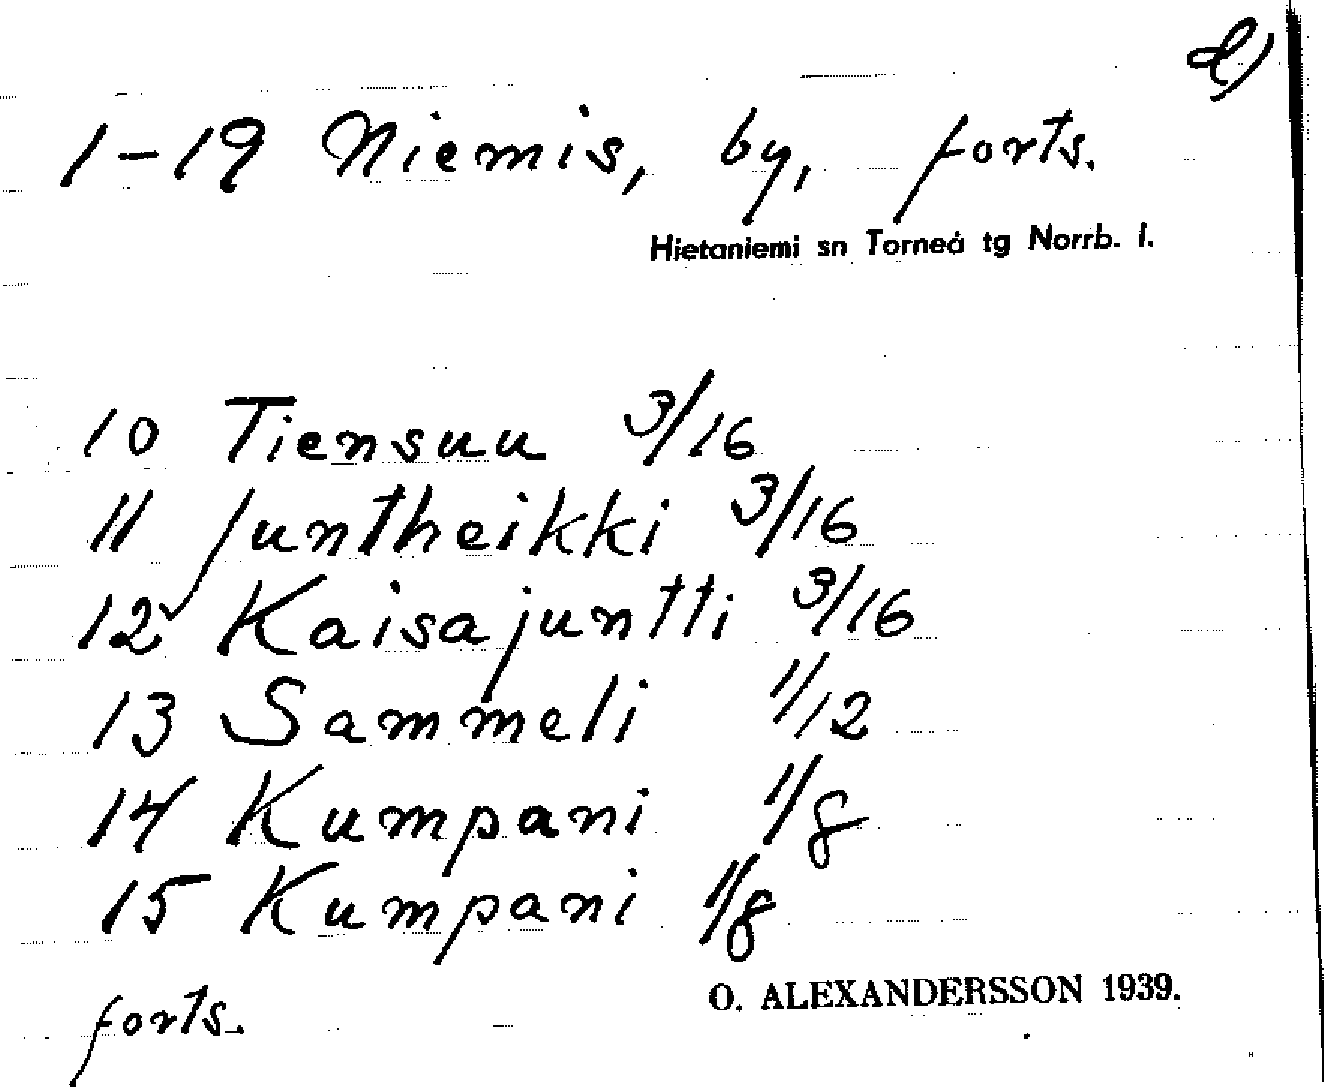 l)
1-19 Niemis, by, forts.
Hietaniemi sn Torneå tg Norrb. l.
10 Tiensuu 3/16
11 Juntheikki 3/16
12 Kaisajuntti 3/16
13 Sammeli 1/12
14 Kumpani 1/8
15 Kumpani 1/8
forts.
O. ALEXANDERSSON 1939.